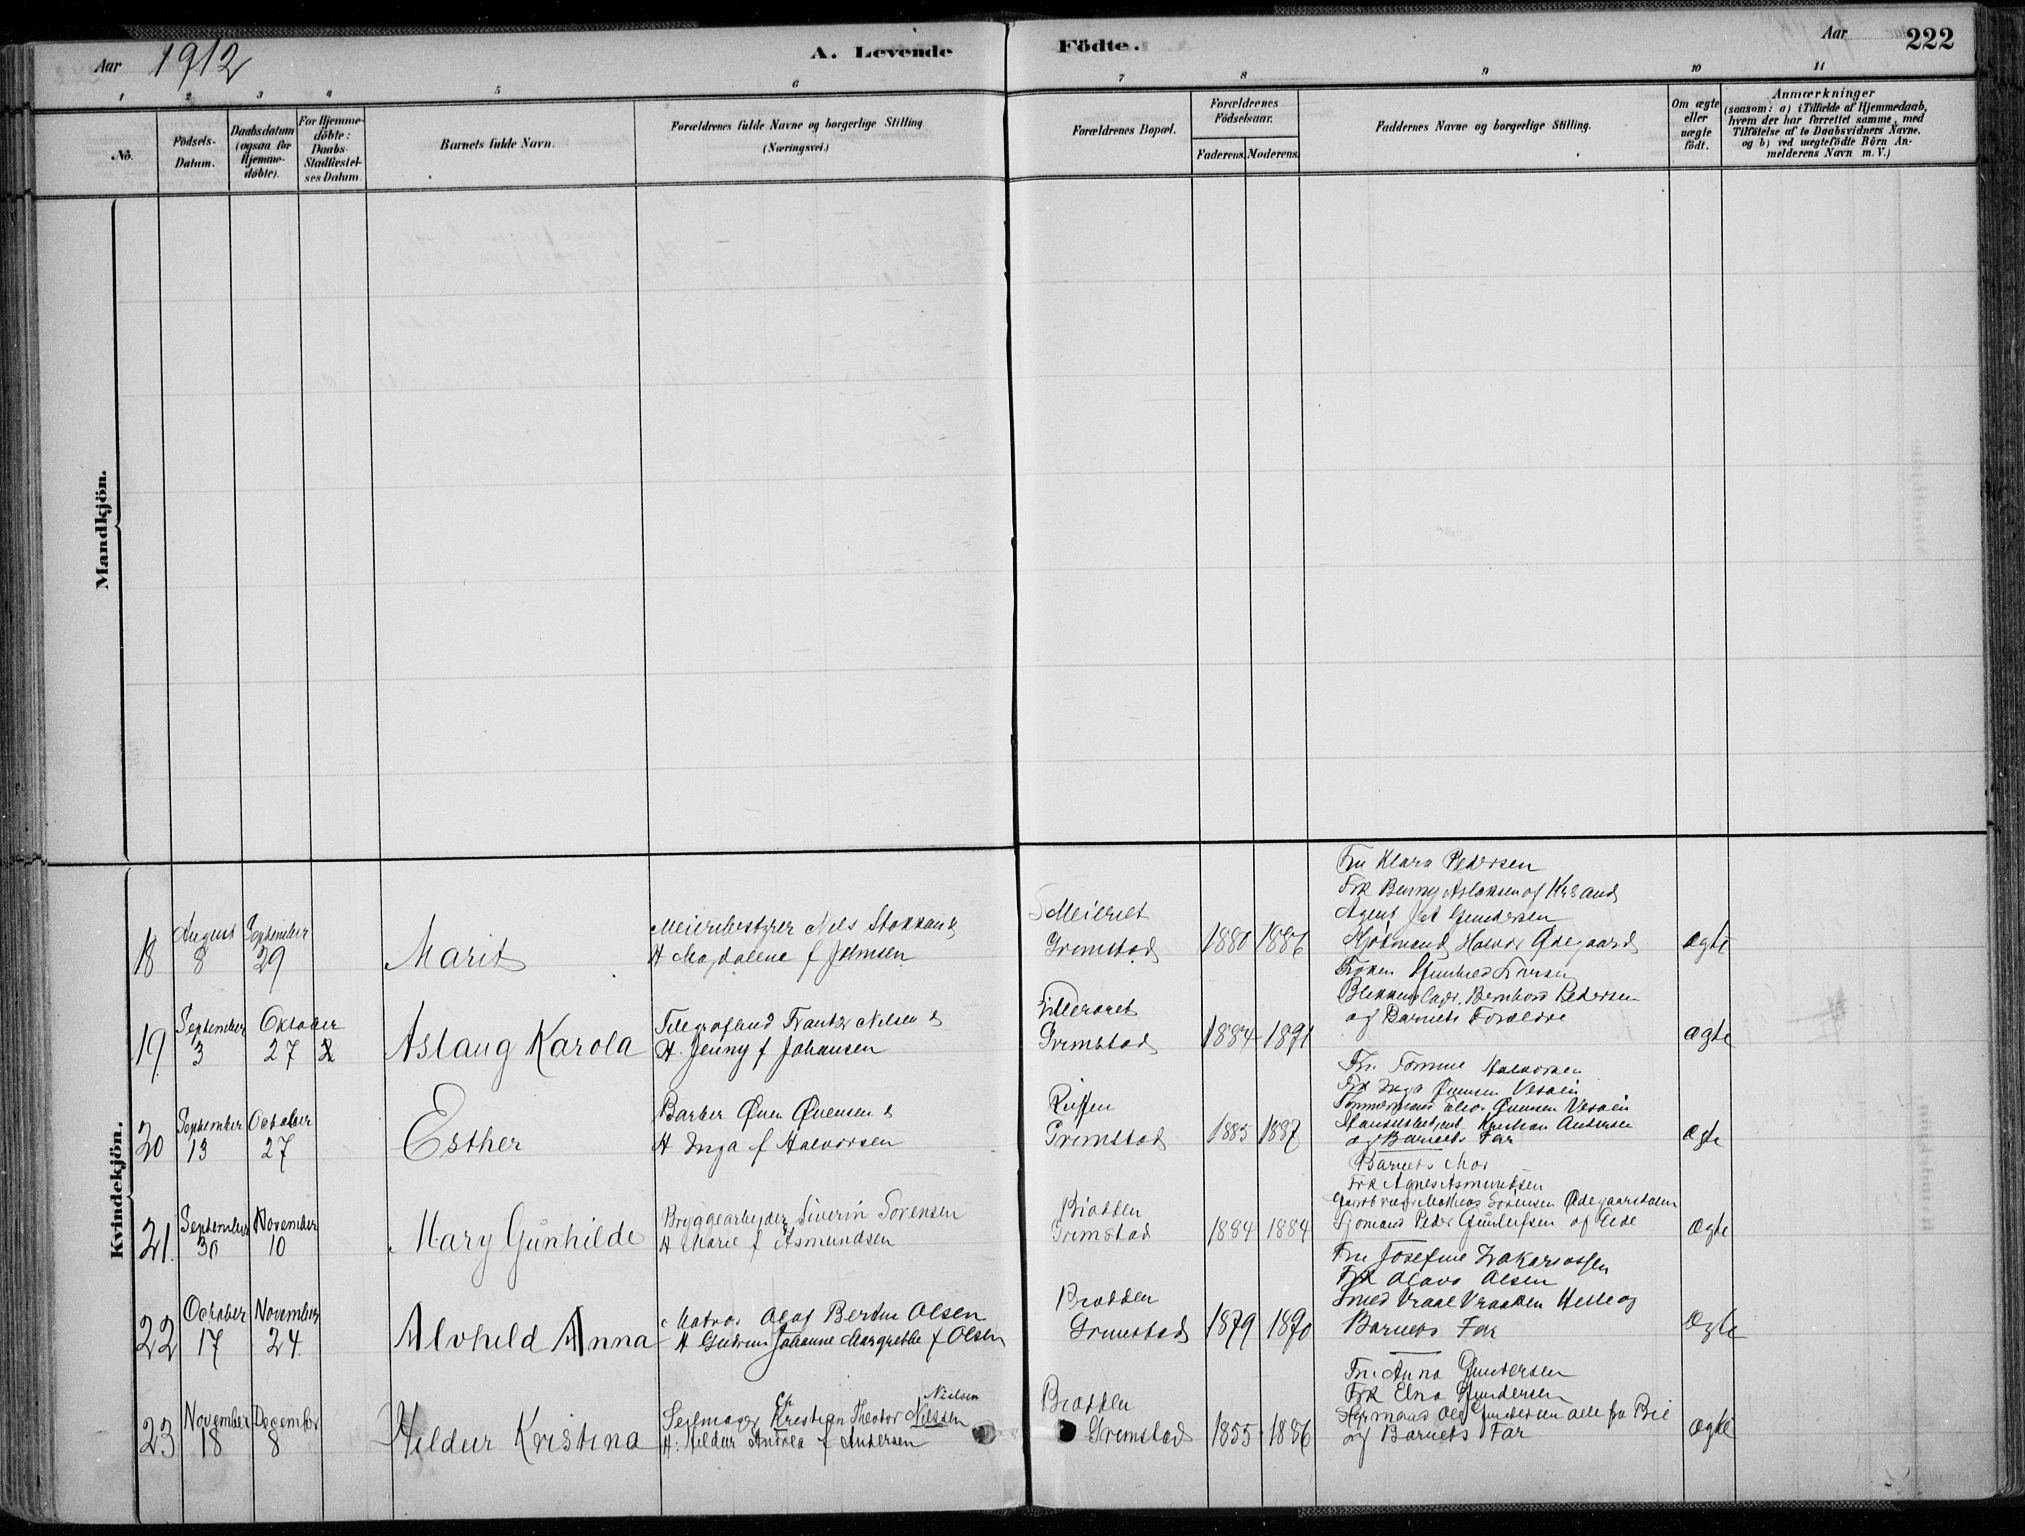 Aar 1912
A. Levende Födte.
Aar
222
1 2 3 4 5 6 7 8 9 10 11
No.
Födsels-Datum.
Daabsdatum (ogsaa for Hjemme-döbte).
For Hjemme-döbte: Daabs-Stadfæstel-ses Datum.
Barnets fulde Navn.
Forældrenes fulde Navne og borgerlige Stilling
(Næringsvei.)
Forældrenes Bopæl.
Forældrenes Födselsaar.
Faderens. Moderens.
Faddernes Navne og borgerlige Stilling.
Om ægte eller uægte födt.
Anmærkninger
(saasom: a) i Tilfælde af Hjemmedaab, hvem der har forrettet samme, med Tilföielse af to Daabsvidners Navne. og b) ved uægtefödte Börn An-melderens Navn m. V.)
Mandkjön.
Kvindekjön.
18
August 8
September 29
Marit
Meieribestyrer Nils Stokkan &
H Magdalene f Johnsen
Meieriet
Grimstad
1880 1886
Fru Klara Pedersen
Frk Aslaksen af Krsand
Agent Gundersen
Halvor Ødegaard
ægte
19
September 3
Oktober 27
Aslaug Karola
Frantz Nilsen &
H. Jenny f Johansen
Grimstad
1884 1891
Frøken
Bernhard Pedersen
og Barnets Forældre
ægte
20
September 13
October 27
Esther
Barber Øven Øvensen &
H Inga f Halvorsen
Grimstad
1885 1887
Fru Halvorsen
Frk Inga Øvensen
Tømmermand Øvensen
Kristian Andersen
og Barnets Far
ægte
21.
September 30
November 10
Mary Gunhilde
Bryggearbeider Siverin Sørensen
H Marie f Asmundsen
Brodden
Grimstad
1884 1884
Barnets Mor
Frk Agnes Asmundsen
Mathias Sørensen Ødegaardsdalen
Sjømand Peder af Eide
ægte
22
October 17
November 24
Alvhild Anna
Matros Olaf Bertin Olsen
H Gudrun Johanne Margrethe f Olsen
Brodden
Grimstad
1879 1890
Fru Josefine Zakariassen
Frk Olava Olsen
Smed Vraal Vraalsen Helle og
Barnets Far
ægte
23
November 18
December 8
Hildur Kristina
Seilmager Kristian Theodor Nilssen
Ch
Nielsen
H. Hildur Andrea f Andersen
Brodden
Grimstad
1855 1886
Fru Anna Gundersen
Frk Elna Gundersen
Gundersen alle fra Bie
og Barnets Far
ægte